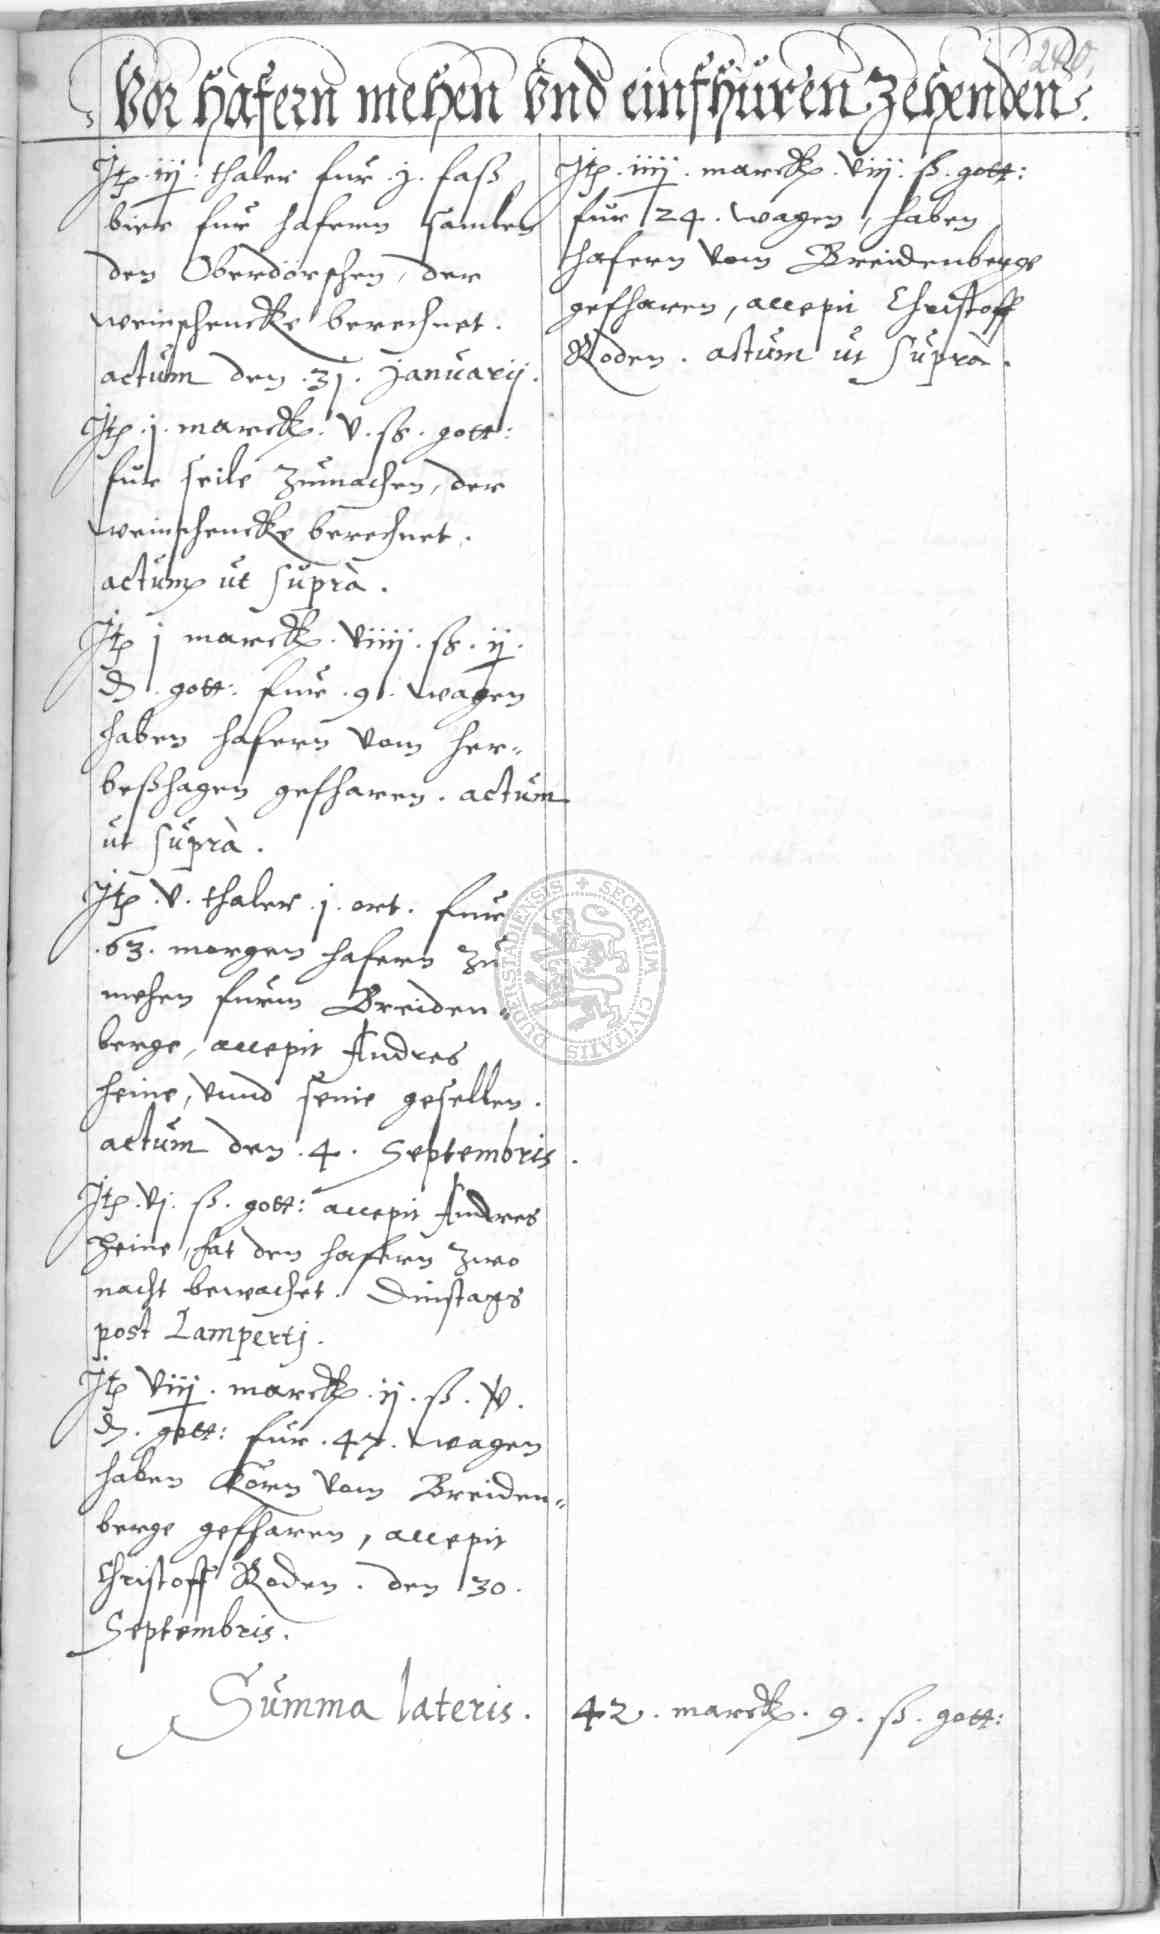 240.
Vor hafern mehen Vnd einfhüren Zehenden.
Jtp. iij. thaler fur .j. faß
bier fur hafern samlen
den Oberdörschen, der
weinschencke berechnet.
actum den .31. januarij.
Jtp. j. marck. v. ß. gott:
fur seile zumachen, der
weinschencke berechnet.
actum ut suprà.
Jtp j marck. viiij. ß. ij.
₰. gott: fur .9. wagen
haben hafern vom her-
beßhagen gefharen. actum
ut suprà.
Jtp. v. thaler .j. ort. fur
.63. morgen hafern zu
mehen furm Breiden-
berge, accepit Andres
heine, vnnd seine gesellen.
actum den .4. Septembris.
Jtp. vj. ß. gott: accepit Andres
heine, hat den hafern zwo
nacht bewachet. Dinstags
post Lampertj.
Jtp viij. marck. ij. ß. v.
₰. gott: fur .47. wagen
haben korn vom Breiden-
berge gefharen, accepit
Christoff Roden. den 30.
Septembris.
Jtp. iiij. marck. viij. ß. gott:
fur 24. wagen, haben
hafern vom Breidenberge
gefharen, accepit Christoff
Roden. actum ut suprà.
Summa lateris. 42. marck. 9. ß. gott:
SECRETUM CIVITATIS DUDERSTADIENSIS